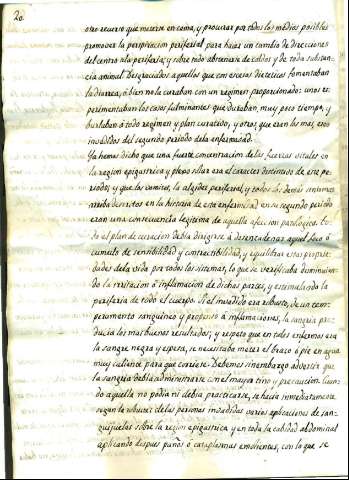 20.
otro recurso que meterse en cama, y procurar por todos los medios posibles
promover la perspiracion periferial para hacer un cambio de direcciones
del centro a la periferia; y sobre todo abstenerse de caldos y de toda substan-
cia animal. Desgraciados aquellos que con escesos dieteticos fomentaban
la diarrea, ó bien no la curaban con un regimen proporcionado: unos es-
perimentaban los casos fulminantes que duraban, muy poco tiempo, y
burlaban á todo regimen y plan curativo, y otros, que eran los mas, eran
invadidos del segundo periodo de la enfermedad.
Ya hemos dicho que una fuerte concentracion de las fuerzas vitales en
la region epigastrica y plexo solar era el caracter distintivo de este pe-
riodo; y que los vomitos, la algidez periferial, y todos los demás sintomas
arriba descritos en la historia de esta enfermedad en su segundo periodo
eran una consecuencia legitima de aquella afeccion patologica. To-
do el plan de curacion debia dirigirse á desencadenar aquel foco ó
cumulo de sensibilidad y contractibilidad, y equilibrar estas propie-
dades de la vida por todos los sistemas, lo que se verificaba disminuien-
do la irritacion é inflamacion de dichas partes, y estimulando la
periferia de todo el cuerpo. Si el invadido era robusto, de un tem-
peramento sanguineo y propenso á inflamaciones, la sangria pro-
ducia los mas buenos resultados; y respeto que en tales enfermos era
la sangre negra y espesa, se necesitaba meter el brazo ó pie en agua
muy caliente para que corriese. Debemos sinembargo advertir que
la sangria debia administrarse con el mayor tino y precaucion. Cuan-
do aquella no podia ni debia practicarse, se hacia inmediatamente
segun la robustez de las personas invadidas varias aplicaciones de san-
guijuelas sobre la region epigastrica y en toda la cabidad abdominal
aplicando despues paños ó cataplasmas emolientes, con lo que se